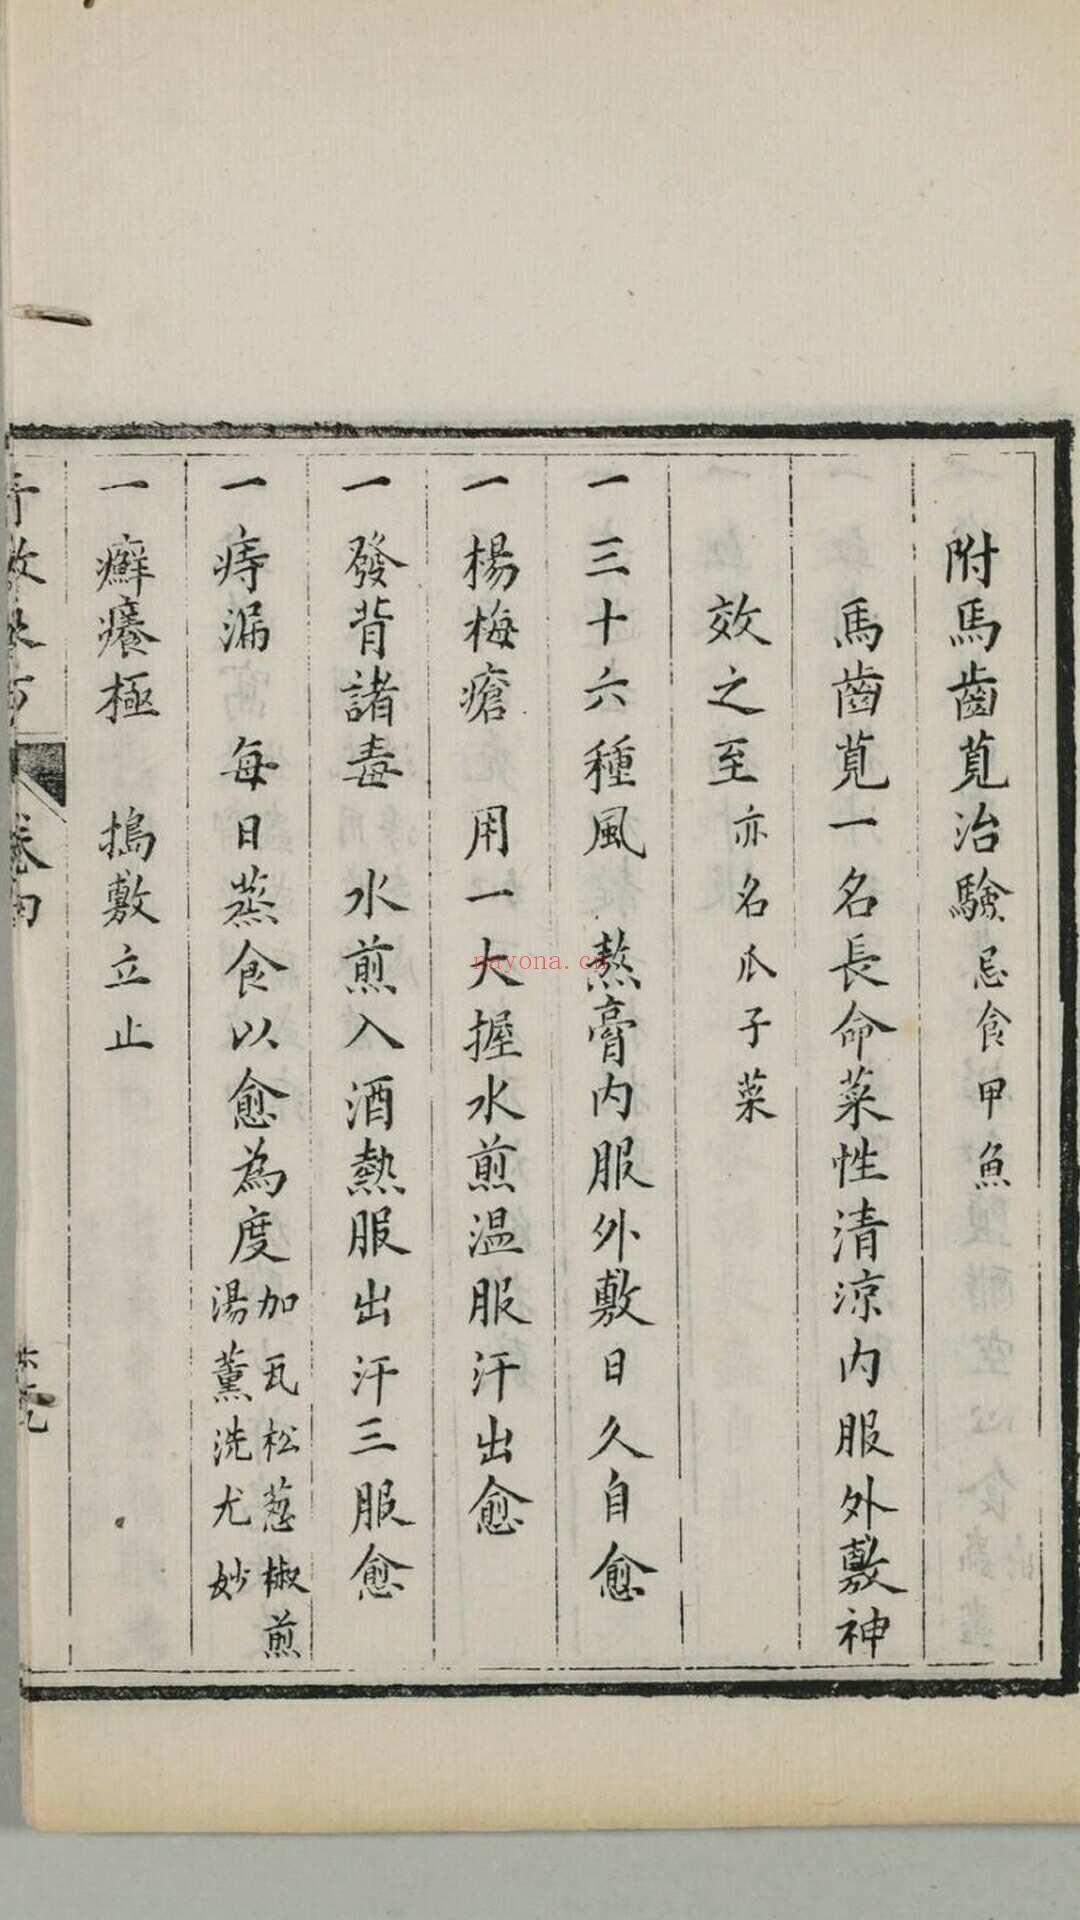 附馬齒莧治驗 忌食甲魚
馬齒莧一名長命菜性清涼內服外敷神
效之至 亦名瓜子菜
一三十六種風 熬膏內服外敷日久自愈
一楊梅瘡 用一大握水煎温服汗出愈
一發背諸毒 水煎入酒熱服出汗三服愈
一痔漏 每日蒸食以愈為度 加瓦松葱椒煎
湯薰洗尤妙
一癬癢極 搗敷立止
卷四
nayona.cn